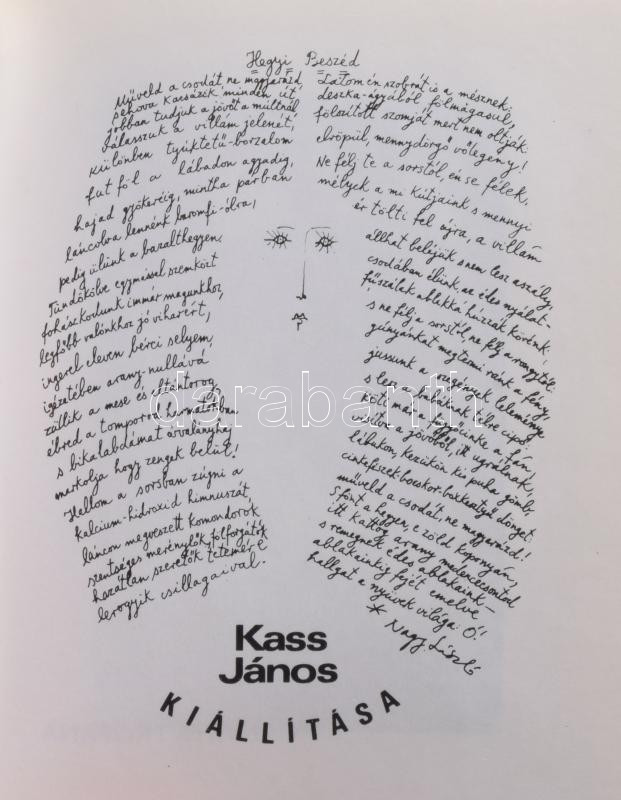 Hegyi Beszéd
Műveld a csodát ne magyarázd,
sehova karcsázik minden út,
jobban tudjuk a jövőt a múltnál
válasszuk a villám jelenét,
különben tyúktetű-borzalom
fut föl a lábadon agyadig,
hajad gyökeréig, mintha párban
láncolva lennénk baromfi-ólra,
pedig ülünk a bazalthegyen,
Tündökölve egymással szemközt
fohászkodunk immár magunkhoz,
legfőbb valónkhoz jó viharért,
ingerel eleven bérci selyem,
igézetében arany-nullává
züllik a mese és eltántorog,
ébred a tomporod harmatokban
s bikalabdámat árvalányhaj
markolja hogy zengek belül!
Hallom a sorsban zúgni a
kalcium-hidroxid himnuszát,
láncon megveszett komondorok
szentséges merénylők, fölforgatók
hazátlan szeretők tetemére
lerogyik csillagaival.
Látom én szobrát is a mésznek:
deszka-ágyából fölmagasul,
fölöszított szomját mert nem oltják
elröpül, mennydörgő vőlegény!
Ne félj te a sorstól, én se félek,
mélyek a mi kútjaink s mennyi
ér tölti fel újra, a villám
állhat beléjük s nem lesz aszály,
csodában élünk, ne édes nyálat-
fűszálak ablakká húzzák körénk,
s ne félj a sorstól, ne félj a rongytól:
gúnyánkat megtermi ránk a fény,
jussunk a regények leleménye
s lesz a babának télre cipő:
költ már fejünkre a fán,
vissza a jövőből, itt ugrálnak,
lábukon, kezükön kis puha gömb,
cinkefészek bocskor-bokkesztyű dönget.
műveld a csodát, ne magyarázd!
S fönt a hegyen, e zöld koponyán,
itt kattog arany medencecsontod
s remegnek édes ablakaink –
ablakainkig fejét emelve
hallgat a nyüvek világa: Ó!
* Nagy László
Kass
János
KIÁLLÍTÁSA
darabanth